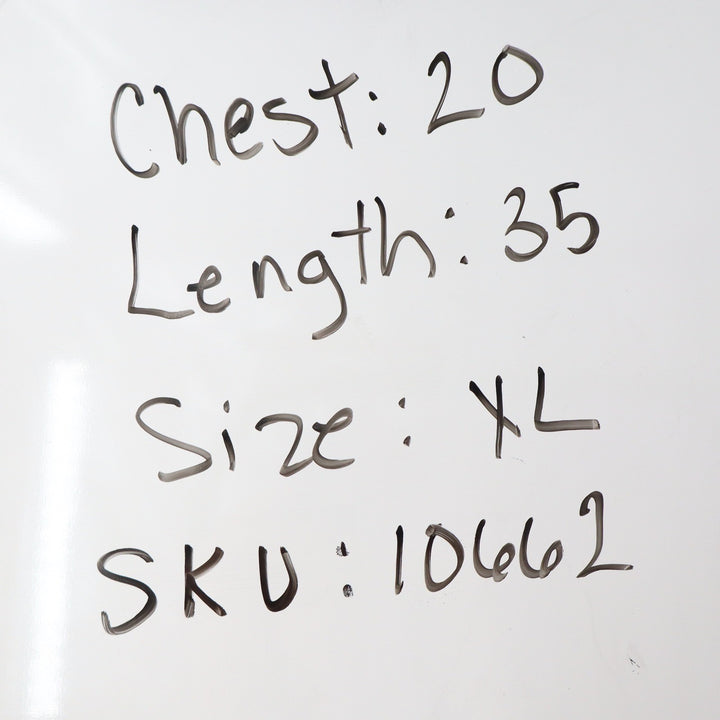 Chest: 20
Length: 35
Size: XL
SKU: 10662